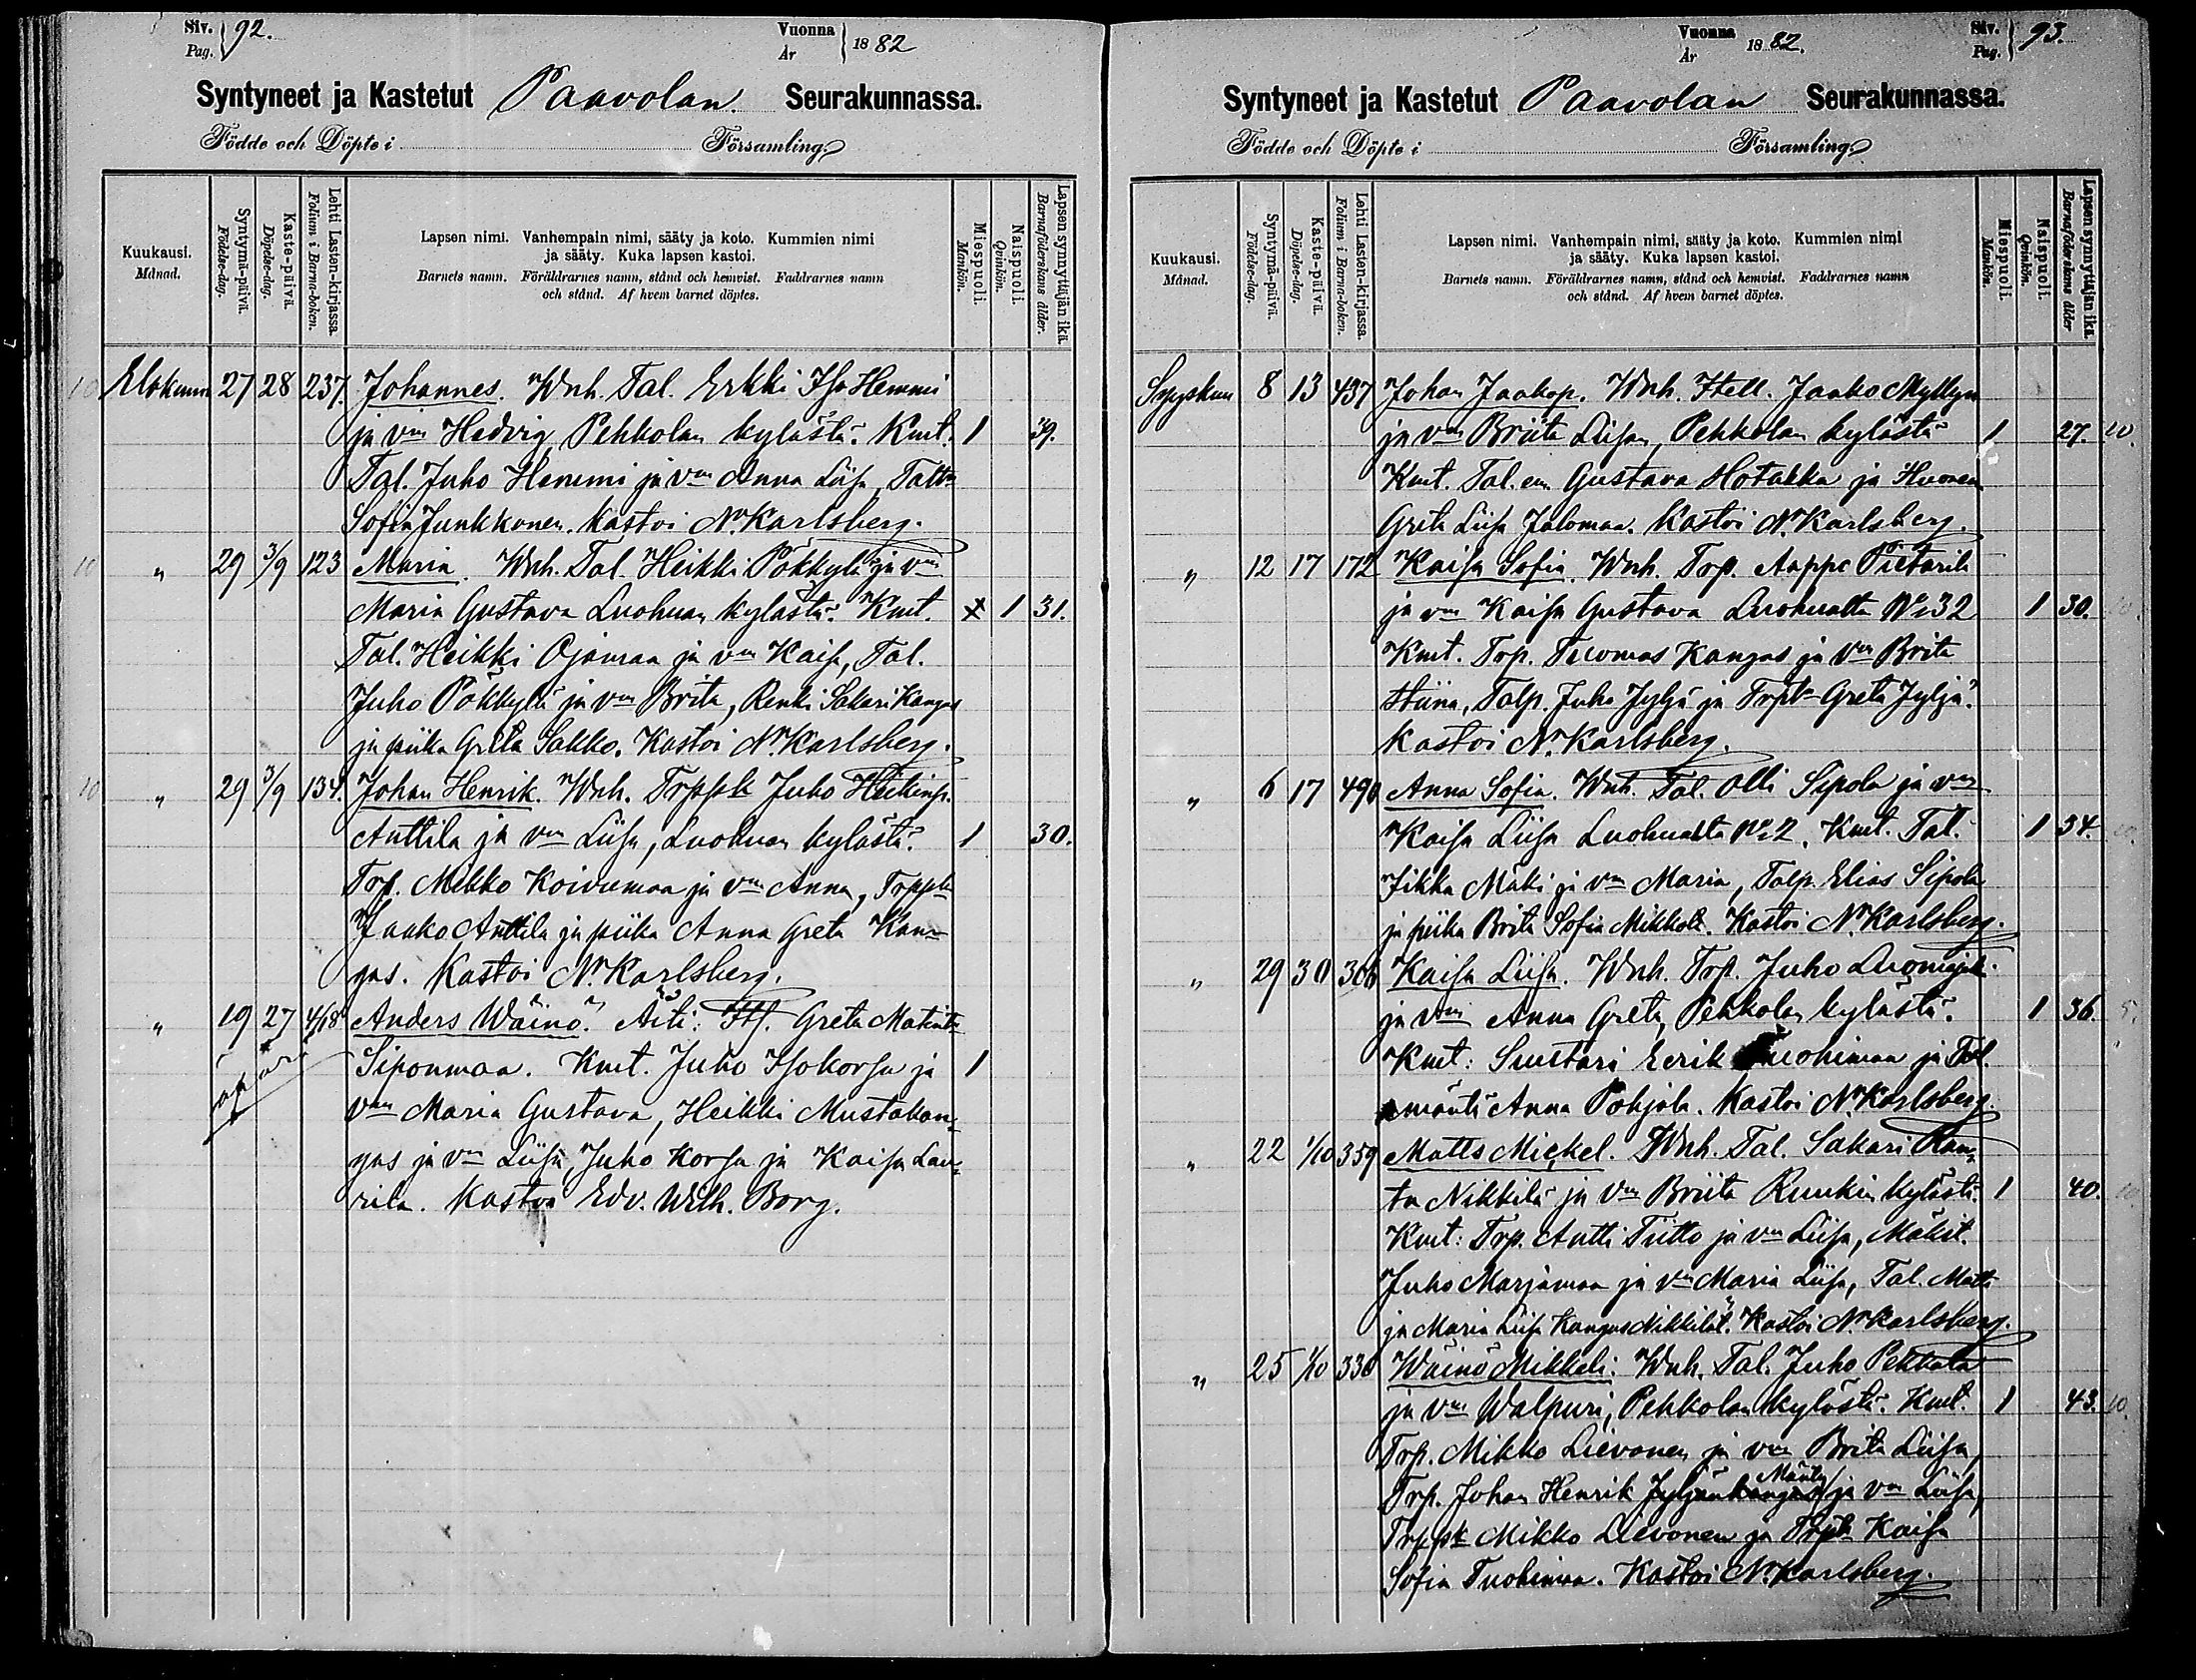 Siv. Pag. 92.
Vuonna År 1882
Syntyneet ja Kastetut Paavolan Seurakunnassa.
Födde och Döpte i Församling
Kuukausi. Månad.
Syntymä-päivä. Födelse-dag.
Kaste-päivä. Döpelse-dag.
Lehti Lasten-kirjassa. Folium i Barna-boken.
Lapsen nimi. Vanhempain nimi, sääty ja koto. Kummien nimi
ja sääty. Kuka lapsen kastoi.
Barnets namn. Föräldrarnes namn, stånd och hemvist. Faddrarnes namn
och stånd. Af hvem barnet döptes.
Miespuoli. Mankön.
Naispuoli. Qvinkön.
Lapsen synnyttäjän ikä. Barnaföderskans ålder.
10 Elokuun 27 28 237. Johannes. Wnh. Tal. Erkki Iso Hemmi
ja vm Hedvig Pehkolan kylästä. Kmt. 1 39.
Tal. Juho Hemmi ja vm Anna Liisa,
Sofia Junkkonen. Kastoi Nr Karlsberg.
10 " 29 3/9 123 Maria. Wnh. Tal. Heikki Pökkylä ja vm
Maria Gustava Luohuan kylästä. Kmt. 1 31.
Tal. Heikki Ojamaa ja vm Kaisa, Tal.
Juho Pökkylä ja vm Brita, Renki Sakari Kangas
ja piika Greta Sakko. Kastoi Nr Karlsberg.
10 " 29 3/9 134. Johan Henrik. Wnh. Juho Heikinp.
Anttila ja vm Liisa, Luohuan kylästä. 1 30.
Trp. Mikko Koivumaa ja vm Anna,
Jaako Anttila ja piika Anna Greta Kan=
gas. Kastoi Nr Karlsberg.
" 19 27 4/18 Anders Wäinö. Äiti: Greta
äpärä Siponmaa. Kmt. Juho Isokorsu ja 1
vm Maria Gustava, Heikki Mustakan=
gas ja vm Liisa, Juho Korsu ja Kaisa Lau=
rila. Kastoi Edv. Wilh. Borg.
Vuonna År 1882.
Siv. Pag. 93.
Syntyneet ja Kastetut Paavolan Seurakunnassa.
Födde och Döpte i Församling
Kuukausi. Månad.
Syntymä-päivä. Födelse-dag.
Kaste-päivä. Döpelse-dag.
Lehti Lasten-kirjassa. Folium i Barna-boken.
Lapsen nimi. Vanhempain nimi, sääty ja koto. Kummien nimi
ja sääty. Kuka lapsen kastoi.
Barnets namn. Föräldrarnes namn, stånd och hemvist. Faddrarnes namn
och stånd. Af hvem barnet döptes.
Miespuoli. Mankön.
Naispuoli. Qvinkön.
Lapsen synnyttäjän ikä. Barnaföderskans ålder
Syyskuu 8 13 437 Johan Jaakop. Wnh. Itsell. Jaako Myllyn
ja vm Briita Liisan, Pehkolan kylästä 1 27. 10.
Kmt. Tal. em. Gustava Hotakka ja
Greta Liisa Jalomaa. Kastoi Nr Karlsberg.
" 12 17 172 Kaisa Sofia. Wnh. Trp. Aappo Pietarila
ja vm Kaisa Gustava Luohualta No 32 1 30. 10.
Kmt. Trp. Tuomas Kangas ja vm Brita
Stiina, Talp. Juho Jyljä ja Greta Jyljä.
Kastoi Nr Karlsberg.
" 6 17 490 Anna Sofia. Wnh. Tal. Olli Sipola ja vm
Kaisa Liisa Luohualta No 2. Kmt. Tal. 1 34. 10.
Iikka Mäki ja vm Maria, Talp. Elias Sipola
ja piika Brita Sofia Mikkola. Kastoi Nr Karlsberg.
" 29 30 306 Kaisa Liisa. Wnh. Trp. Juho
ja vm Anna Greta, Pehkolan kylästä. 1 36. 5.
Kmt: Suutari Eerik Tuohimaa ja Tal.
emäntä Anna Pohjola. Kastoi Nr Karlsberg.
" 22 1/10 359 Matts Mickel. Wnh. Tal. Sakari Ran=
ta Nikkilä ja vm Briita Ruukin kylästä. 1 40. 10
Kmt: Trp. Antti Tiitto ja vm Liisa, Mäkit.
Juho Marjamaa ja vm Maria Liisa, Tal. Matti
ja Maria Liisa Kangas Nikkilät. Kastoi Nr Karlsberg.
" 25 1/10 330 Wäinö Mikkeli: Wnh. Tal. Juho Pehkola
ja vm Walpuri, Pehkolan kylästä. Kmt. 1 43. 10.
Trp. Mikko Lievonen ja vm Brita Liisa,
Trp. Johan Henrik Jyljänkangas Mänty ja vm Liisa,
Mikko Lievonen ja Kaisa
Sofia Tuohimaa. Kastoi Nr Karlsberg.